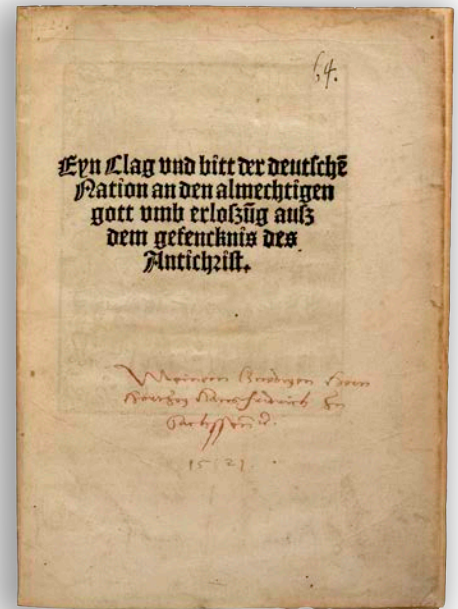 64.
Eyn Clag vnd bitt der deutschē
Nation an den almechtigen
gott vmb erloszūg ausz
dem gefencknis des
Antichrist.
Meinem Herrn
Hansfridrich zu
Sachssen
1521.